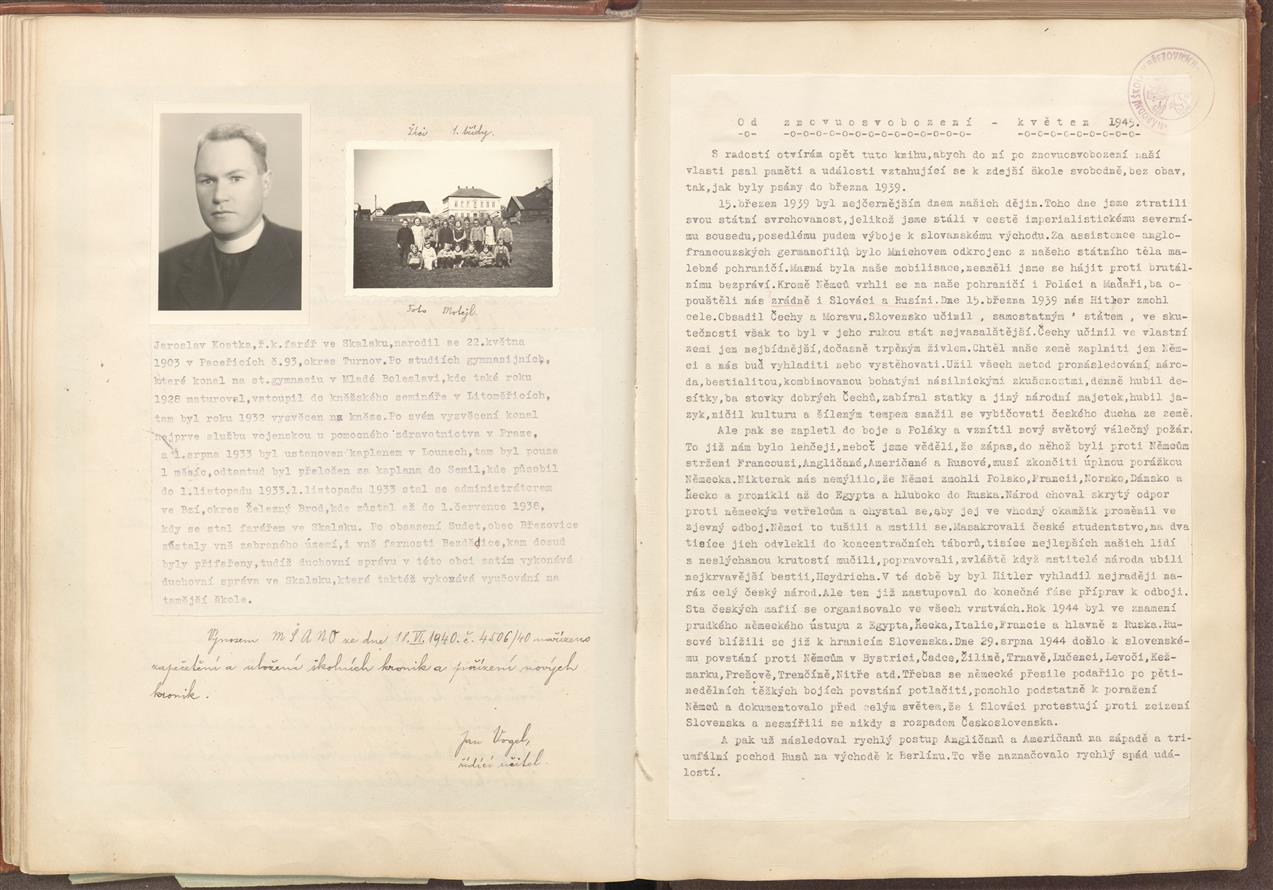 Žáci 1. třídy.
Foto Motejl.
Jaroslav Kostka,ř.k.farář ve Skalsku,narodil se 22.května
1903 v Paceřicích č.93,okres Turnov.Po studiích gymnasijních,
které konal na st.gymnasiu v Mladé Boleslavi,kde také roku
1928 maturoval,vstoupil do kněžského semináře v Litoměřicích,
tam byl roku 1932 vysvěcen na kněze.Po svém vysvěcení konal
nejprve službu vojenskou u pomocného zdravotnictva v Praze,
a 1.srpna 1933 byl ustanoven kaplanem v Lounech,tam byl pouze
1 měsíc,odtentud byl přeložen za kaplana do Semil,kde působil
do 1.listopadu 1933.1.listopadu 1933 stal se administrátorem
ve Bzí,okres Železný Brod,kde zůstal až do 1.července 1938,
kdy se stal farářem ve Skalsku. Po obsazení Sudet,obec Březovice
zůstaly vně zabraného území,i vně farnosti Bezdědice,kam dosud
byly přifařeny,tudíž duchovní správu v této obci zatím vykonává
duchovní správa ve Skalsku,která taktéž vykonává vyučování na
tamější škole.
Výnosem MŠANO ze dne 11.VI.1940.č.4506/40 nařízeno
zapečetění a uložení školních kronik a pořízení nových
kronik.
Jan Vogel,
řídící učitel.
Od znovuosvobození - květen 1945.
-o- -o-o-o-o-o-o-o-o-o-o-o-o-o-o- -o-o-o-o-o-o-o-o-o-
S radostí otvírám opět tuto knihu,abych do ní po znovuosvobození naší
vlasti psal paměti a události vztahující se k zdejší škole svobodně,bez obav,
tak,jak byly psány do března 1939.
15.březen 1939 byl nejčernějším dnem našich dějin.Toho dne jsme ztratili
svou státní svrchovanost,jelikož jsme stáli v cestě imperialistickému severní-
mu sousedu,posedlému pudem výboje k slovanskému východu.Za assistence anglo-
francouzských germanofilů bylo Mnichovem odkrojeno z našeho státního těla ma-
lebné pohraničí.Marná byla naše mobilisace,nesměli jsme se hájit proti brutál-
nímu bezpráví.Kromě Němců vrhli se na naše pohraničí i Poláci a Maďaři,ba o-
pouštěli nás zrádně i Slováci a Rusíni.Dne 15.března 1939 nás Hitler zmohl
cele.Obsadil Čechy a Moravu.Slovensko učinil , samostatným ' státem , ve sku-
tečnosti však to byl v jeho rukou stát nejvasalštější.Čechy učinil ve vlastní
zemi jen nejbídnější,dočasně trpěným živlem.Chtěl naše země zaplniti jen Něm-
ci a nás buď vyhladiti nebo vystěhovati.Užil všech metod pronásledování náro-
da,bestialitou,kombinovanou bohatými násilnickými zkušenostmi,denně hubil de-
sítky,ba stovky dobrých Čechů,zabíral statky a jiný národní majetek,hubil ja-
zyk,ničil kulturu a šíleným tempem snažil se vybičovati českého ducha ze země.
Ale pak se zapletl do boje s Poláky a vznítil nový světový válečný požár.
To již nám bylo lehčeji,neboť jsme věděli,že zápas,do něhož byli proti Němcům
strženi Francouzi,Angličané,Američané a Rusové,musí zkončiti úplnou porážkou
Německa.Nikterak nás nemýlilo,že Němci zmohli Polsko,Francii,Norsko,Dánsko a
Řecko a pronikli až do Egypta a hluboko do Ruska.Národ choval skrytý odpor
proti německým vetřelcům a chystal se,aby jej ve vhodný okamžik proměnil ve
zjevný odboj.Němci to tušili a mstili se.Masakrovali české studentstvo,na dva
tisíce jich odvlekli do koncentračních táborů,tisíce nejlepších našich lidí
s neslýchanou krutostí mučili,popravovali,zvláště když mstitelé národa ubili
nejkrvavější bestii,Heydricha.V té době by byl Hitler vyhladil nejraději na-
ráz celý český národ.Ale ten již nastupoval do konečné fáse příprav k odboji.
Sta českých mafií se organisovalo ve všech vrstvách.Rok 1944 byl ve znamení
prudkého německého ústupu z Egypta,Řecka,Italie,Francie a hlavně z Ruska.Ru-
sové blížili se již k hranicím Slovenska.Dne 29.srpna 1944 došlo k slovenské-
mu povstání proti Němcům v Bystrici,Čadce,Žilině,Trnavě,Lučenci,Levoči,Kež-
marku,Prešově,Trenčíně,Nitře atd.Třebas se německé přesile podařilo po pěti-
nedělních těžkých bojích povstání potlačiti,pomohlo podstatně k poražení
Němců a dokumentovalo před celým světem,že i Slováci protestují proti zcizení
Slovenska a nesmířili se nikdy s rozpadem Československa.
A pak už následoval rychlý postup Angličanů a Američanů na západě a tri-
umfální pochod Rusů na východě k Berlínu.To vše naznačovalo rychlý spád udá-
lostí.